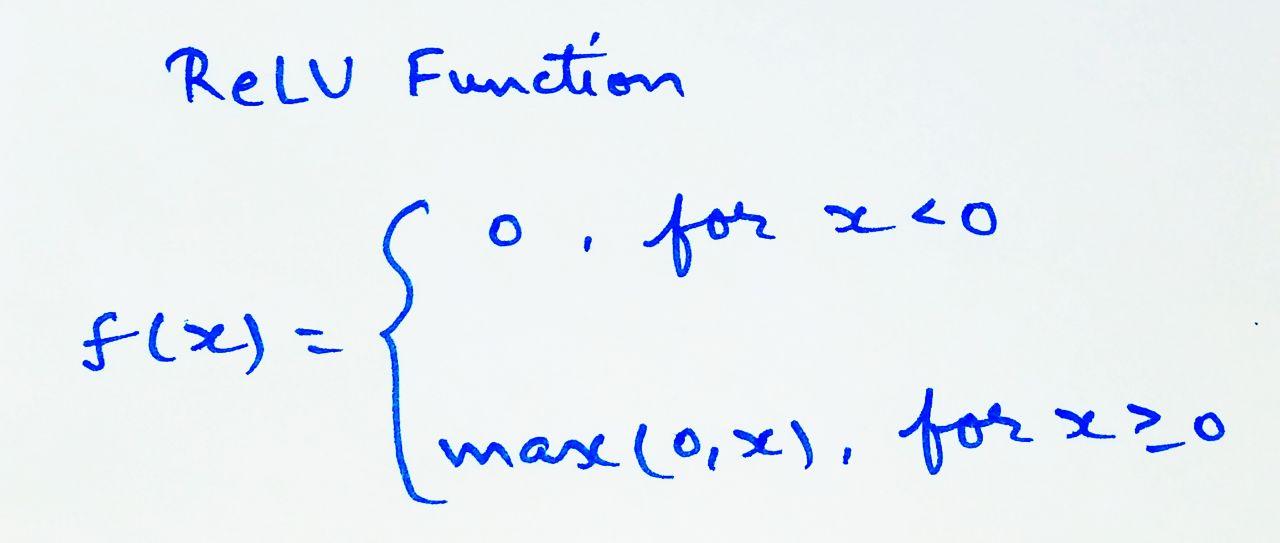 ReLU Function
0, for x < 0
f(x) = {
max(0, x), for x ≥ 0